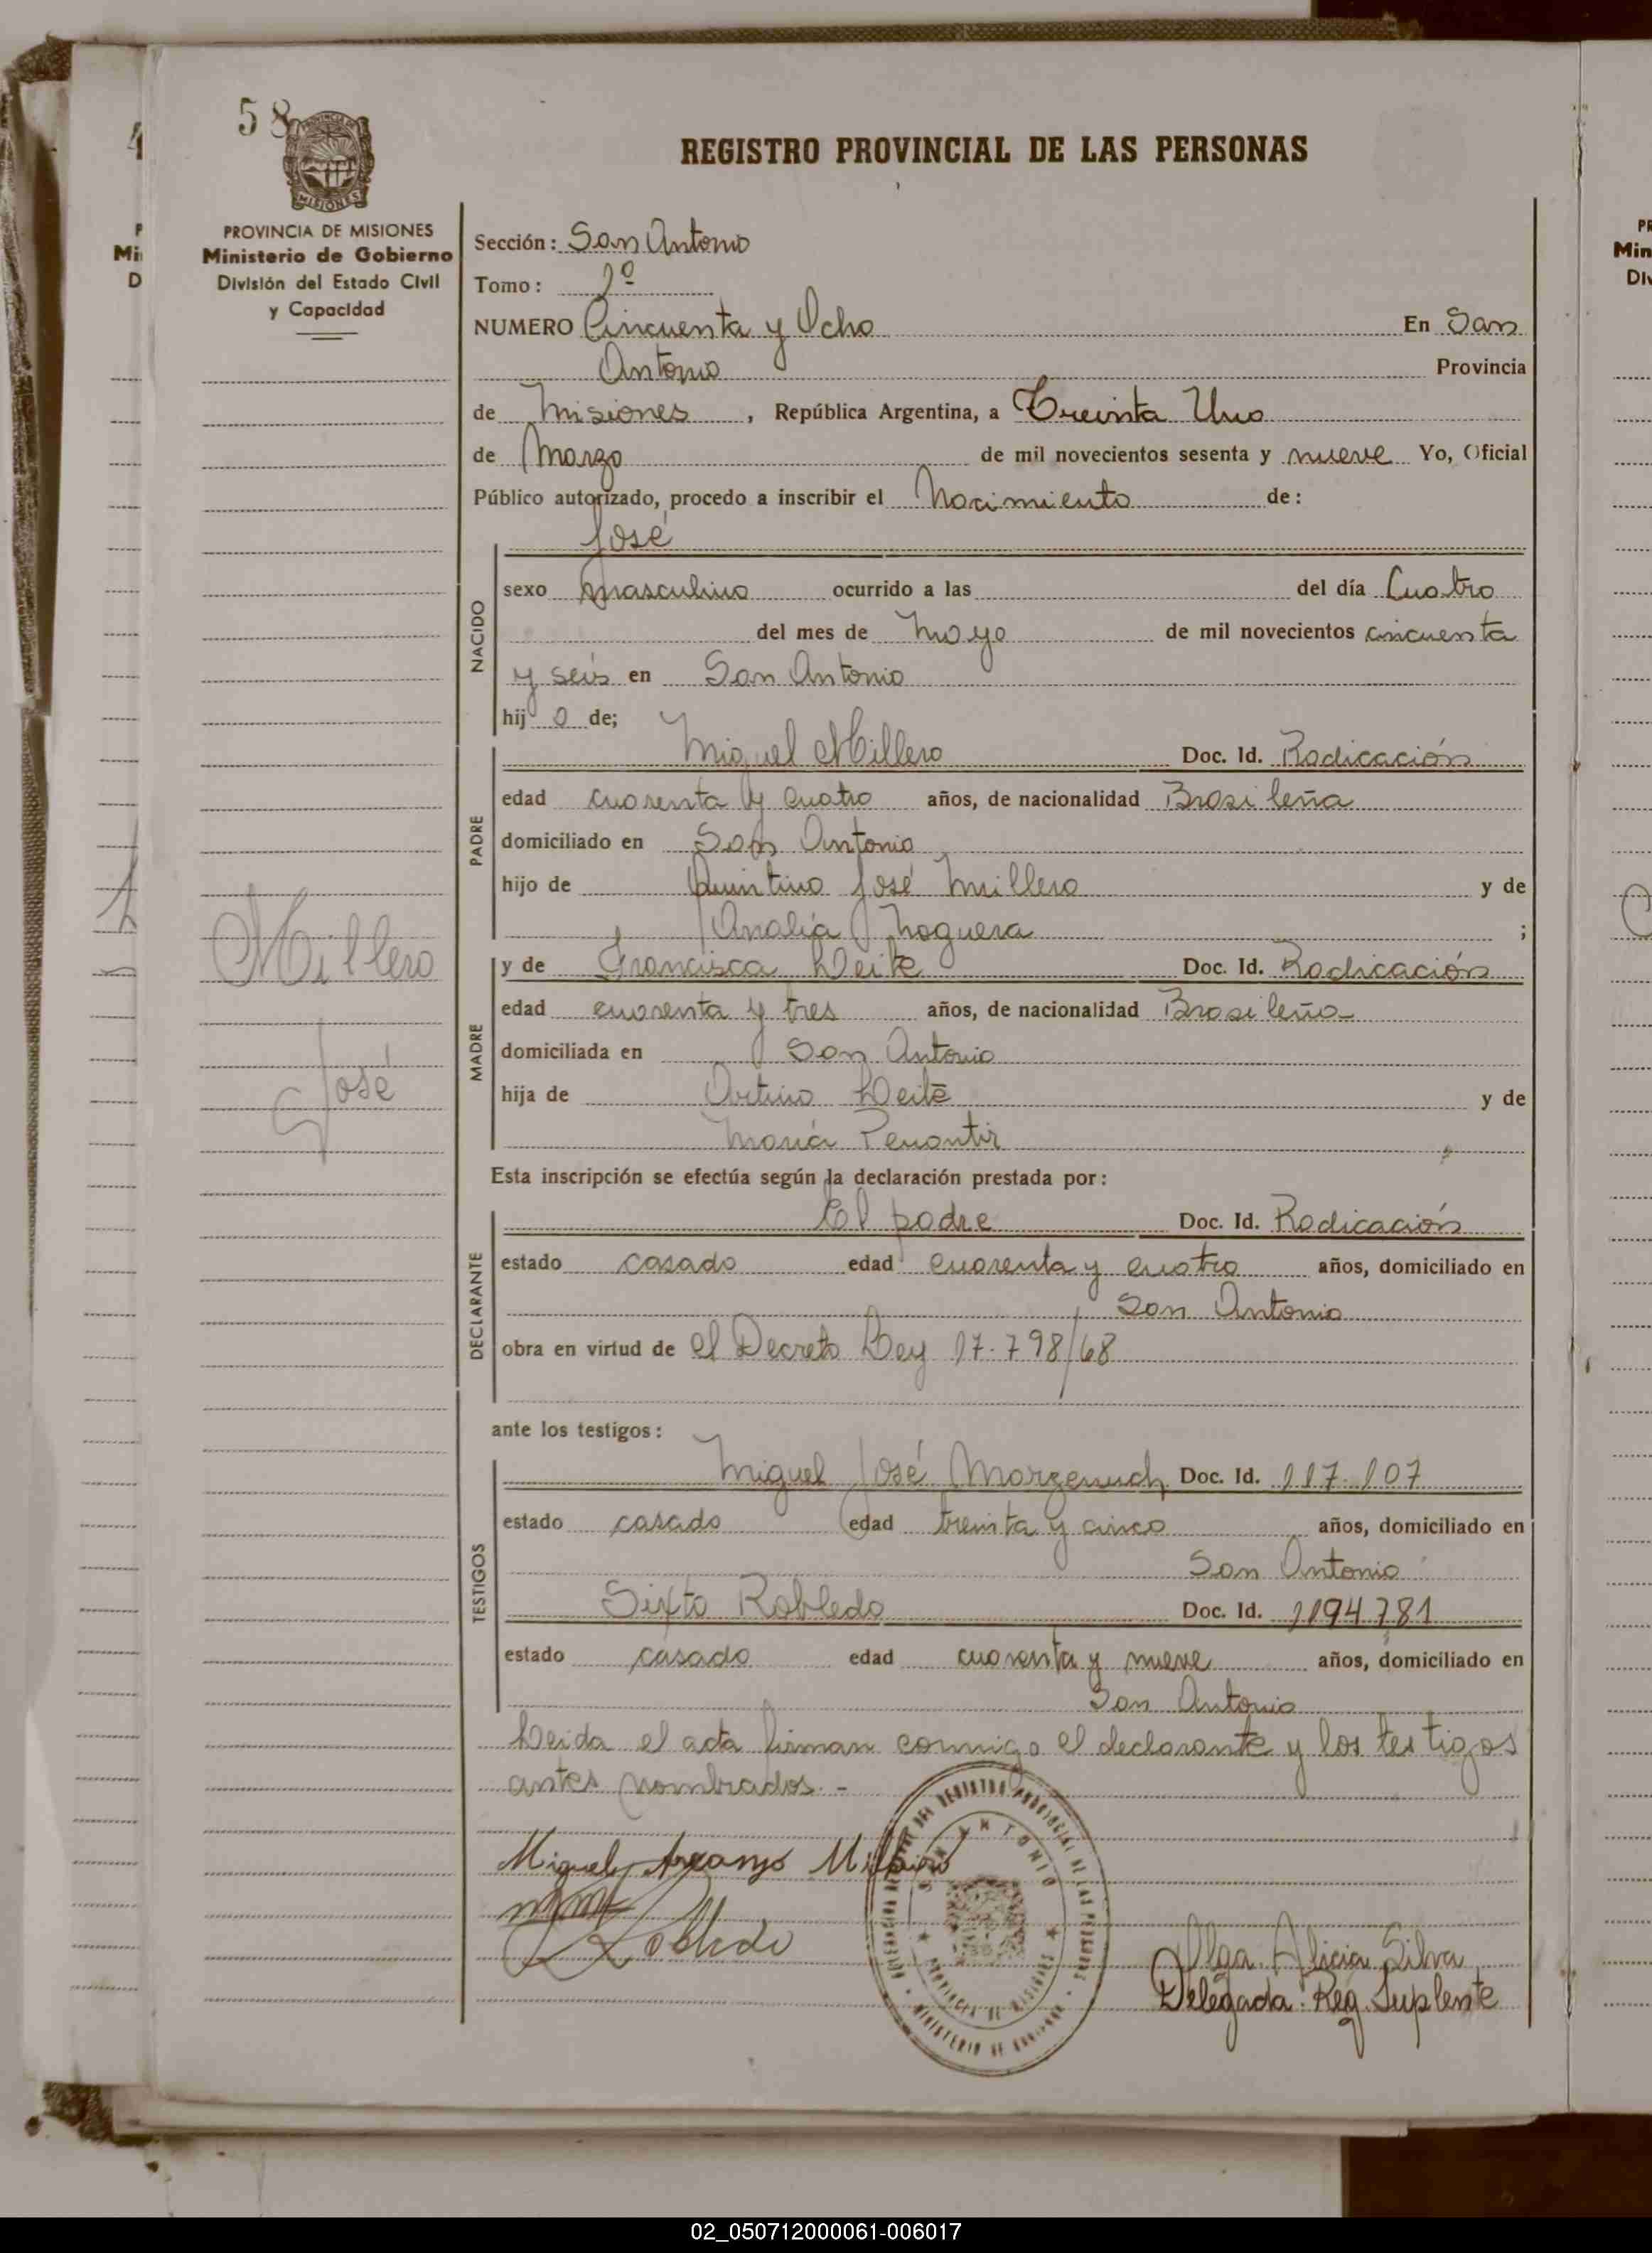 58
PROVINCIA DE MISIONES
Ministerio de Gobierno
División del Estado Civil
y Capacidad
REGISTRO PROVINCIAL DE LAS PERSONAS
Sección: San Antonio
Tomo: 1º
NUMERO Cincuenta y Ocho En San
Antonio Provincia
de Misiones, República Argentina, a Treinta Uno
de Marzo de mil novecientos sesenta y nueve Yo, Oficial
Público autorizado, procedo a inscribir el Nacimiento de:
José
NACIDO
sexo masculino ocurrido a las del día Cuatro
del mes de Mayo de mil novecientos cincuenta
y seis en San Antonio
hijo de;
PADRE
Miguel Millero Doc. Id. Radicación
edad cuarenta y cuatro años, de nacionalidad Brasileña
domiciliado en San Antonio
hijo de Quintino José Millero y de
Analia Noguera ;
Millero
José
MADRE
y de Francisca Leite Doc. Id. Radicación
edad cuarenta y tres años, de nacionalidad Brasileña
domiciliada en San Antonio
hija de Leite y de
María
Esta inscripción se efectúa según la declaración prestada por:
DECLARANTE
El padre Doc. Id. Radicación
estado casado edad cuarenta y cuatro años, domiciliado en
San Antonio
obra en virtud de el Decreto Ley 17.798/68
ante los testigos:
TESTIGOS
Miguel José Doc. Id. 117.107
estado casado edad treinta y cinco años, domiciliado en
San Antonio
Sixto Robledo Doc. Id. 1194781
estado casado edad cuarenta y nueve años, domiciliado en
San Antonio
Leida el acta firman conmigo el declarante y los testigos
antes nombrados.-
Miguel Arcanjo
Robledo
SAN ANTONIO
PROVINCIA DE MISIONES
Olga Alicia Silva
Delegada Reg. Suplente
02_050712000061-006017